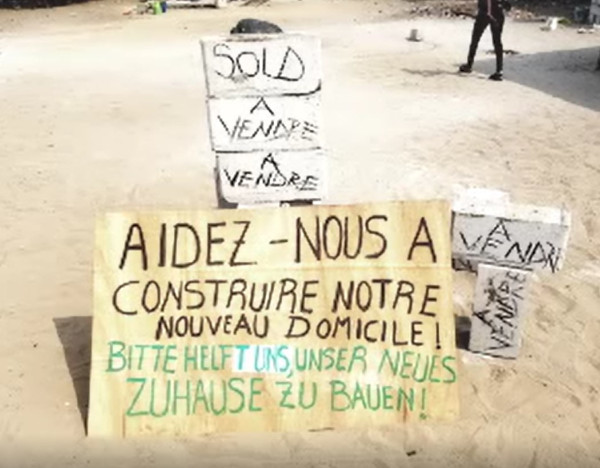 SOLD
A
VENDRE
A
VENDRE
A
VENDRE
A
VENDRE
AIDEZ-NOUS A
CONSTRUIRE NOTRE
NOUVEAU DOMICILE!
BITTE HELFT UNS, UNSER NEUES
ZUHAUSE ZU BAUEN!